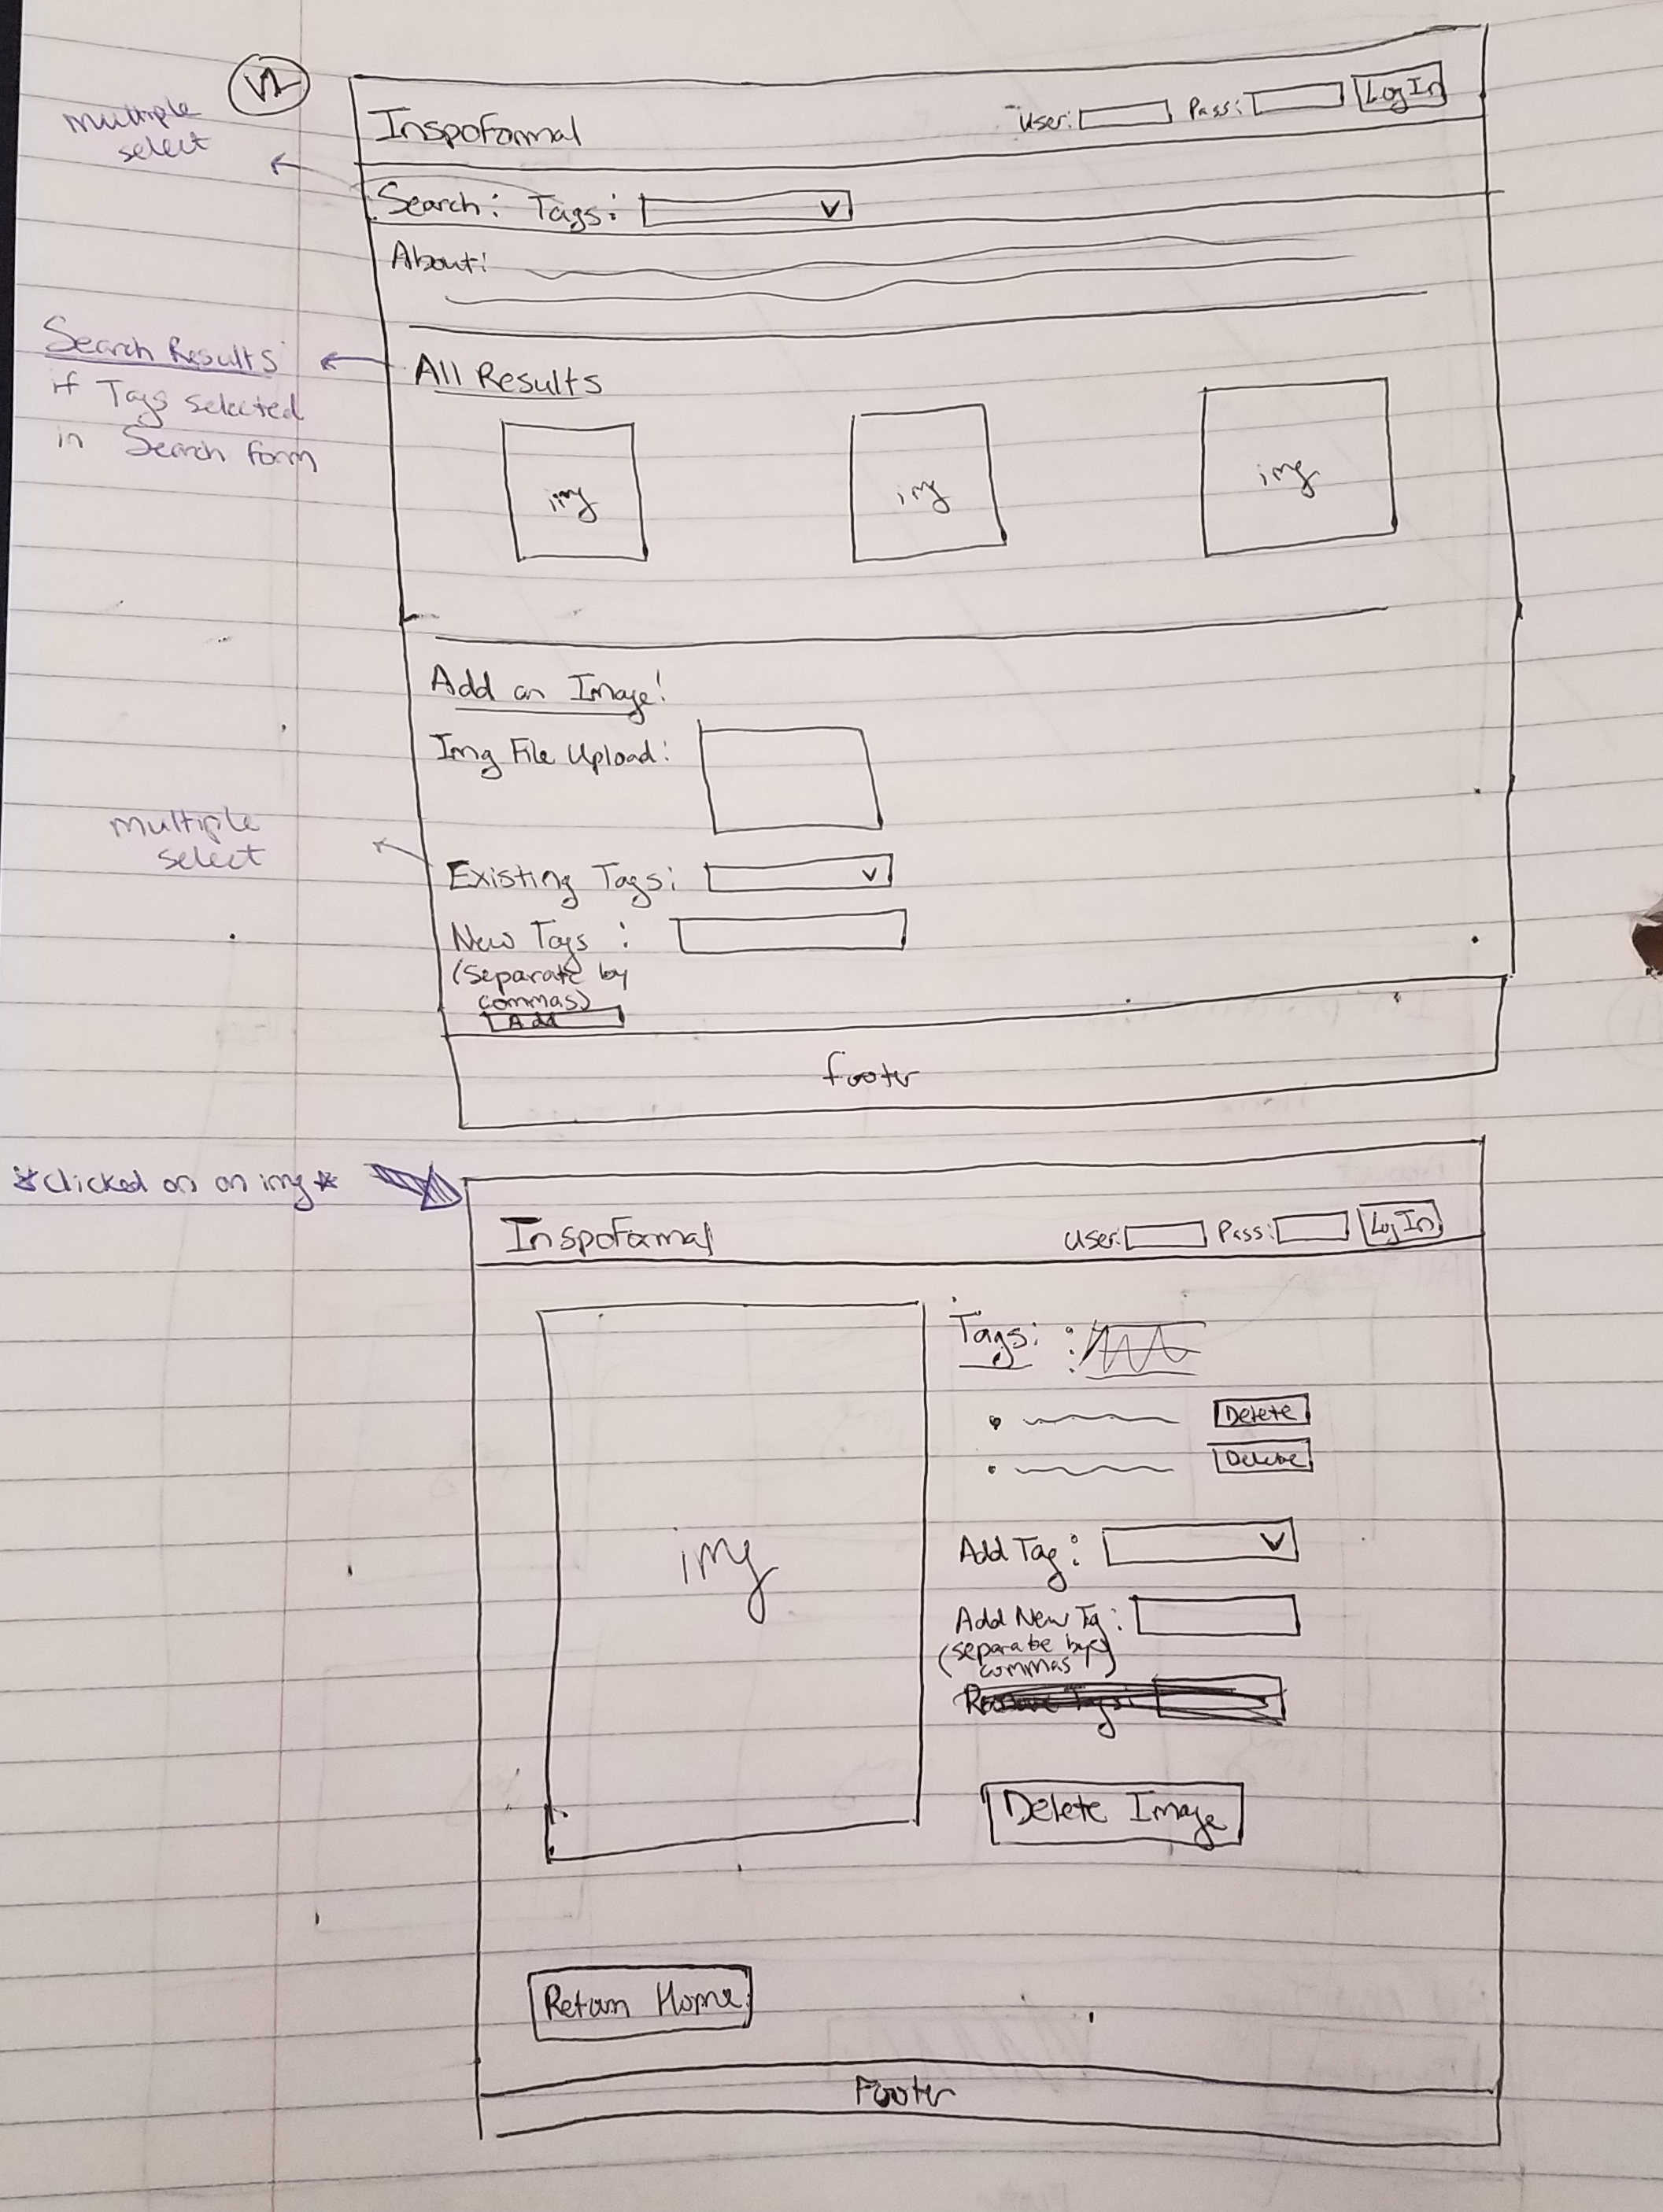 V1
Multiple
select
InspoFormal
User: Pass: Log In
Search: Tags: V
About:
Search Results
if Tags selected
in Search form
All Results
img img img
Add an Image!
Img File Upload:
multiple
select
Existing Tags: V
New Tags :
(separate by
commas)
Add
footer
*Clicked on an img*
InspoFormal
User: Pass: Log In
Tags:
Delete
Delete
img
Add Tag: V
Add New Tag:
(separate by
commas)
Remove Tags:
Delete Image
Return Home
Footer